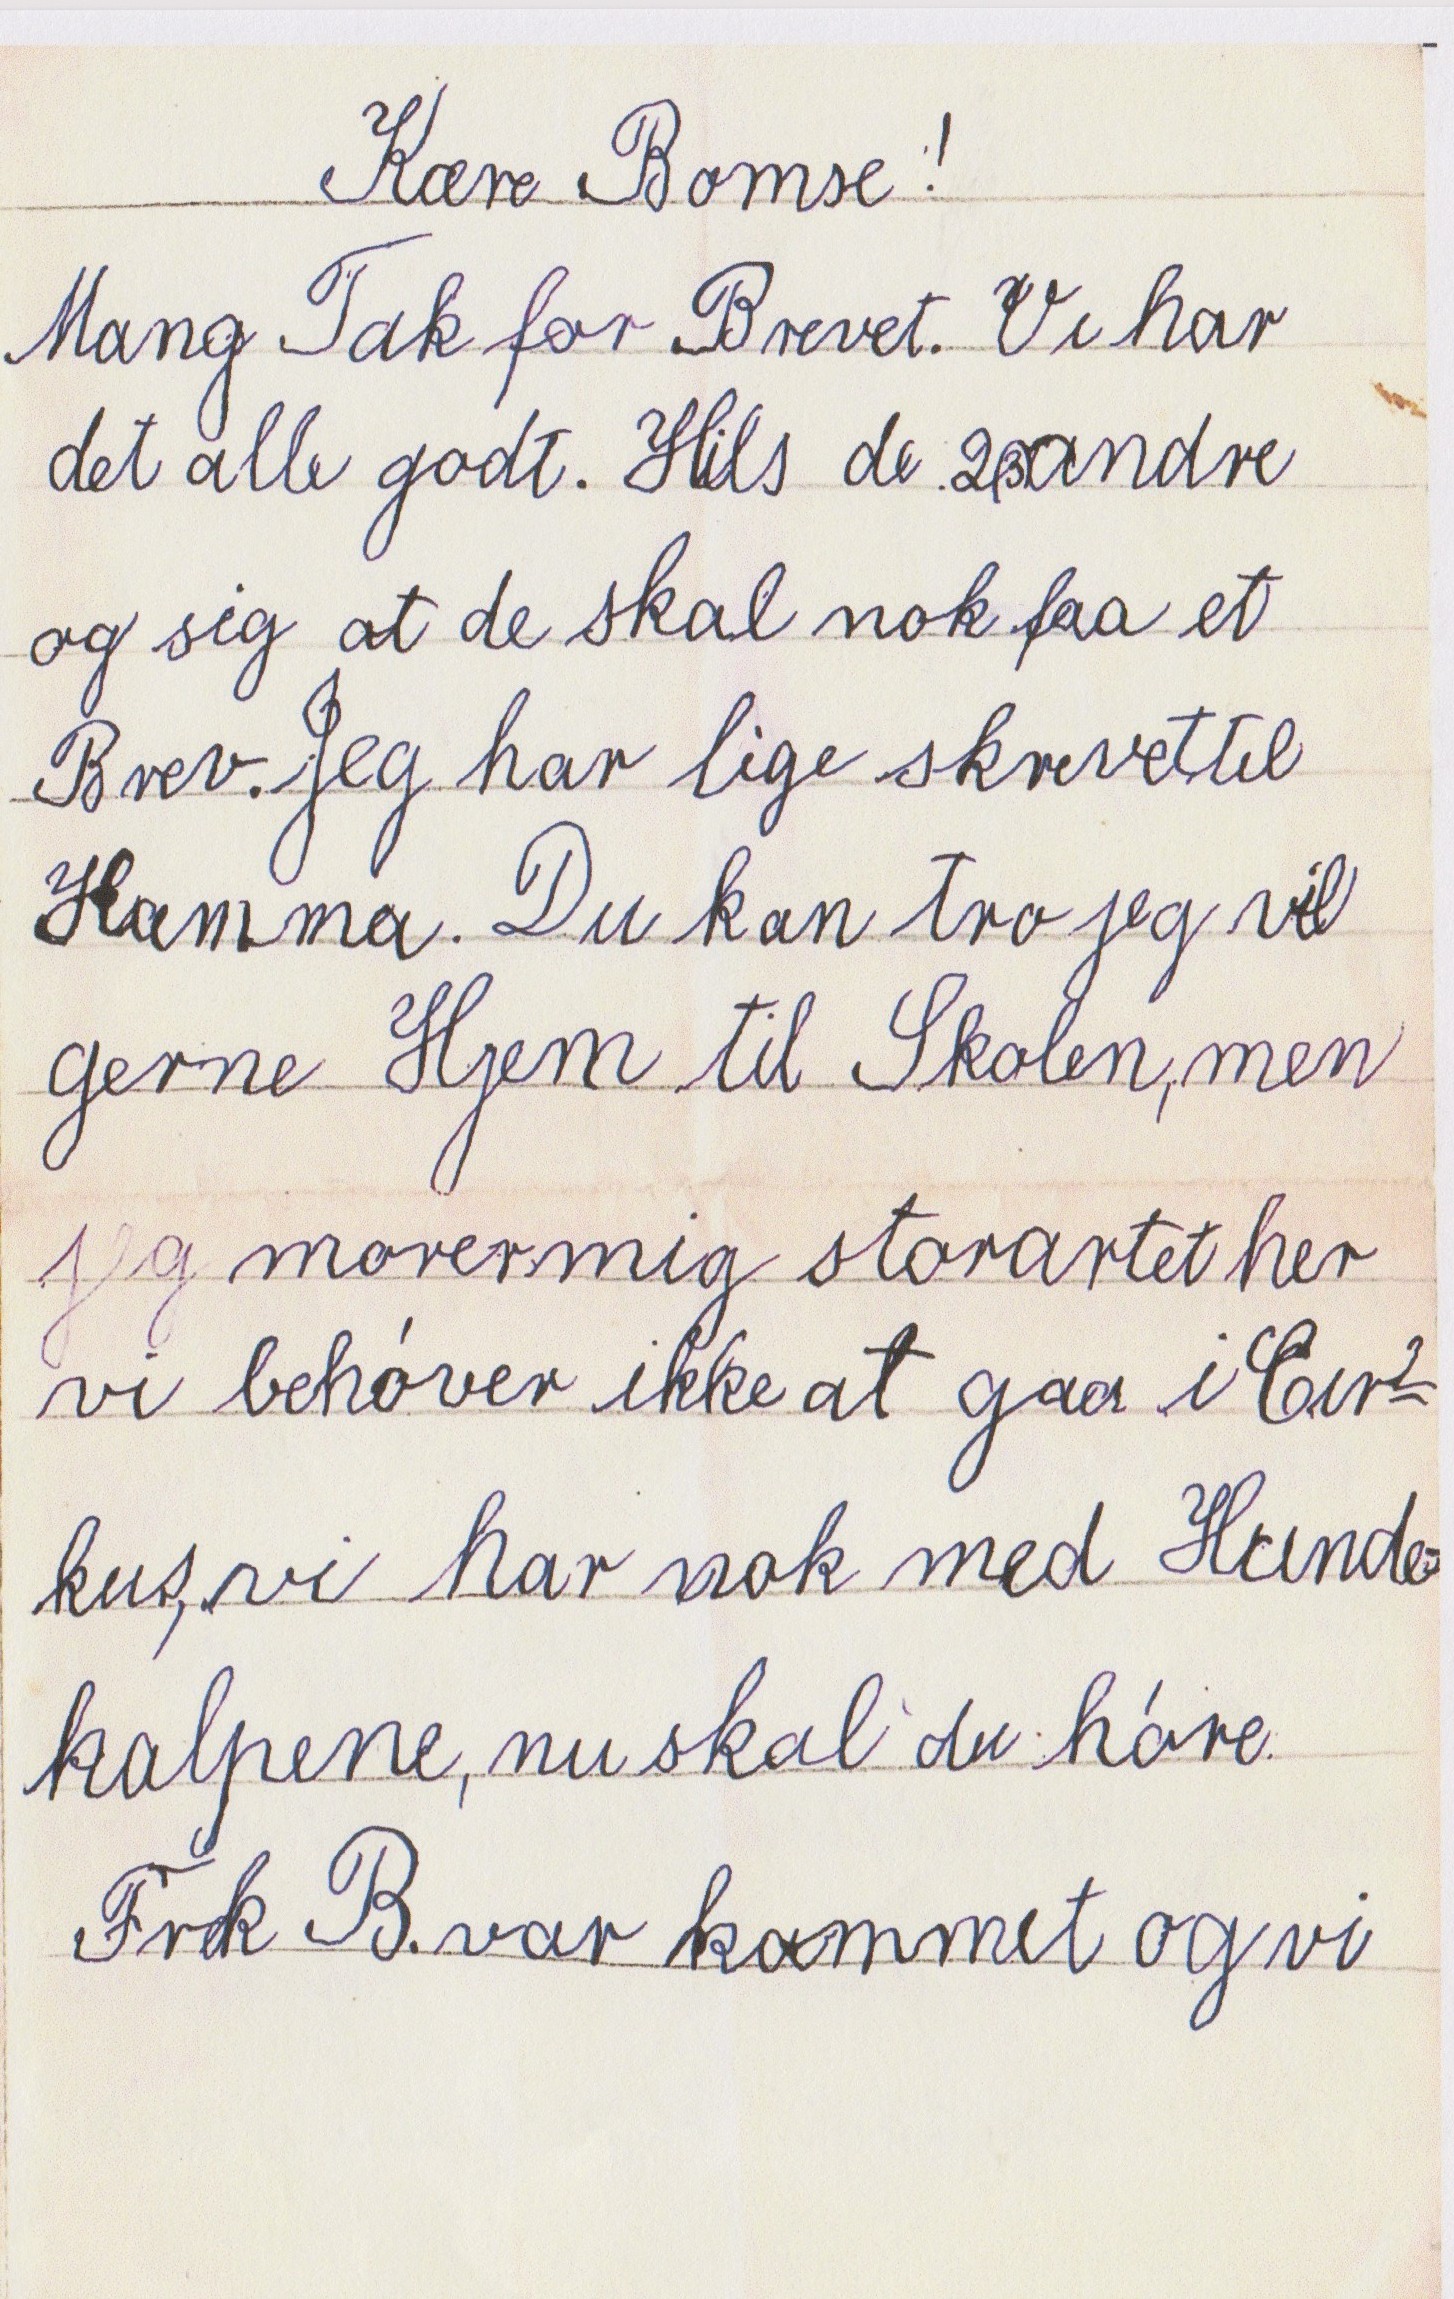 Kære Bomse!
Mang Tak for Brevet. Vi har
det alle godt. Hils de 2 andre
og sig at de skal nok faa et
Brev. Jeg har lige skrevet til
Hamma. Du kan tro jeg vil
gerne Hjem til Skolen, men
jeg morer mig storartet her
vi behóver ikke at gaa i Cir-
kus, vi har nok med Hunde-
kalpene, nu skal du hóre.
Frk B. var kommet og vi